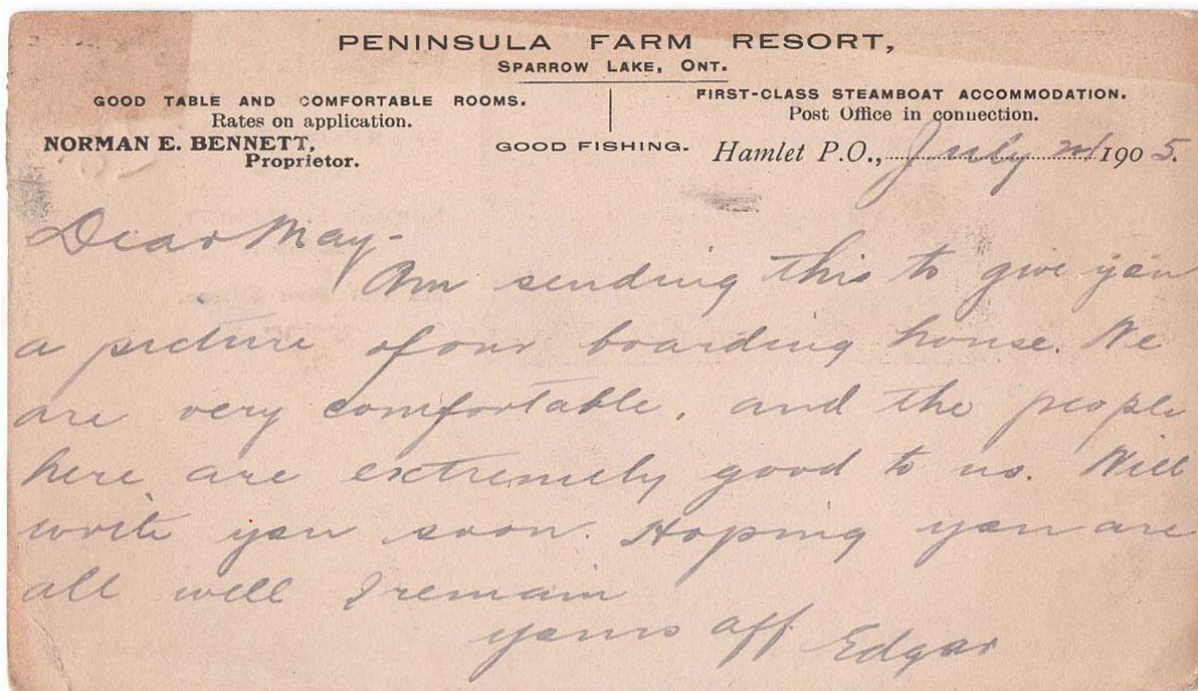 PENINSULA FARM RESORT,
SPARROW LAKE, ONT.
GOOD TABLE AND COMFORTABLE ROOMS.
Rates on application.
NORMAN E. BENNETT,
Proprietor.
GOOD FISHING.
FIRST-CLASS STEAMBOAT ACCOMMODATION.
Post Office in connection.
Hamlet P.O., July 1905.
Dear May-
Am sending this to give you
a picture of our boarding house. We
are very comfortable, and the people
here are extremely good to us. Will
write you soon. Hoping you are
all well I remain
yours aff Edgar